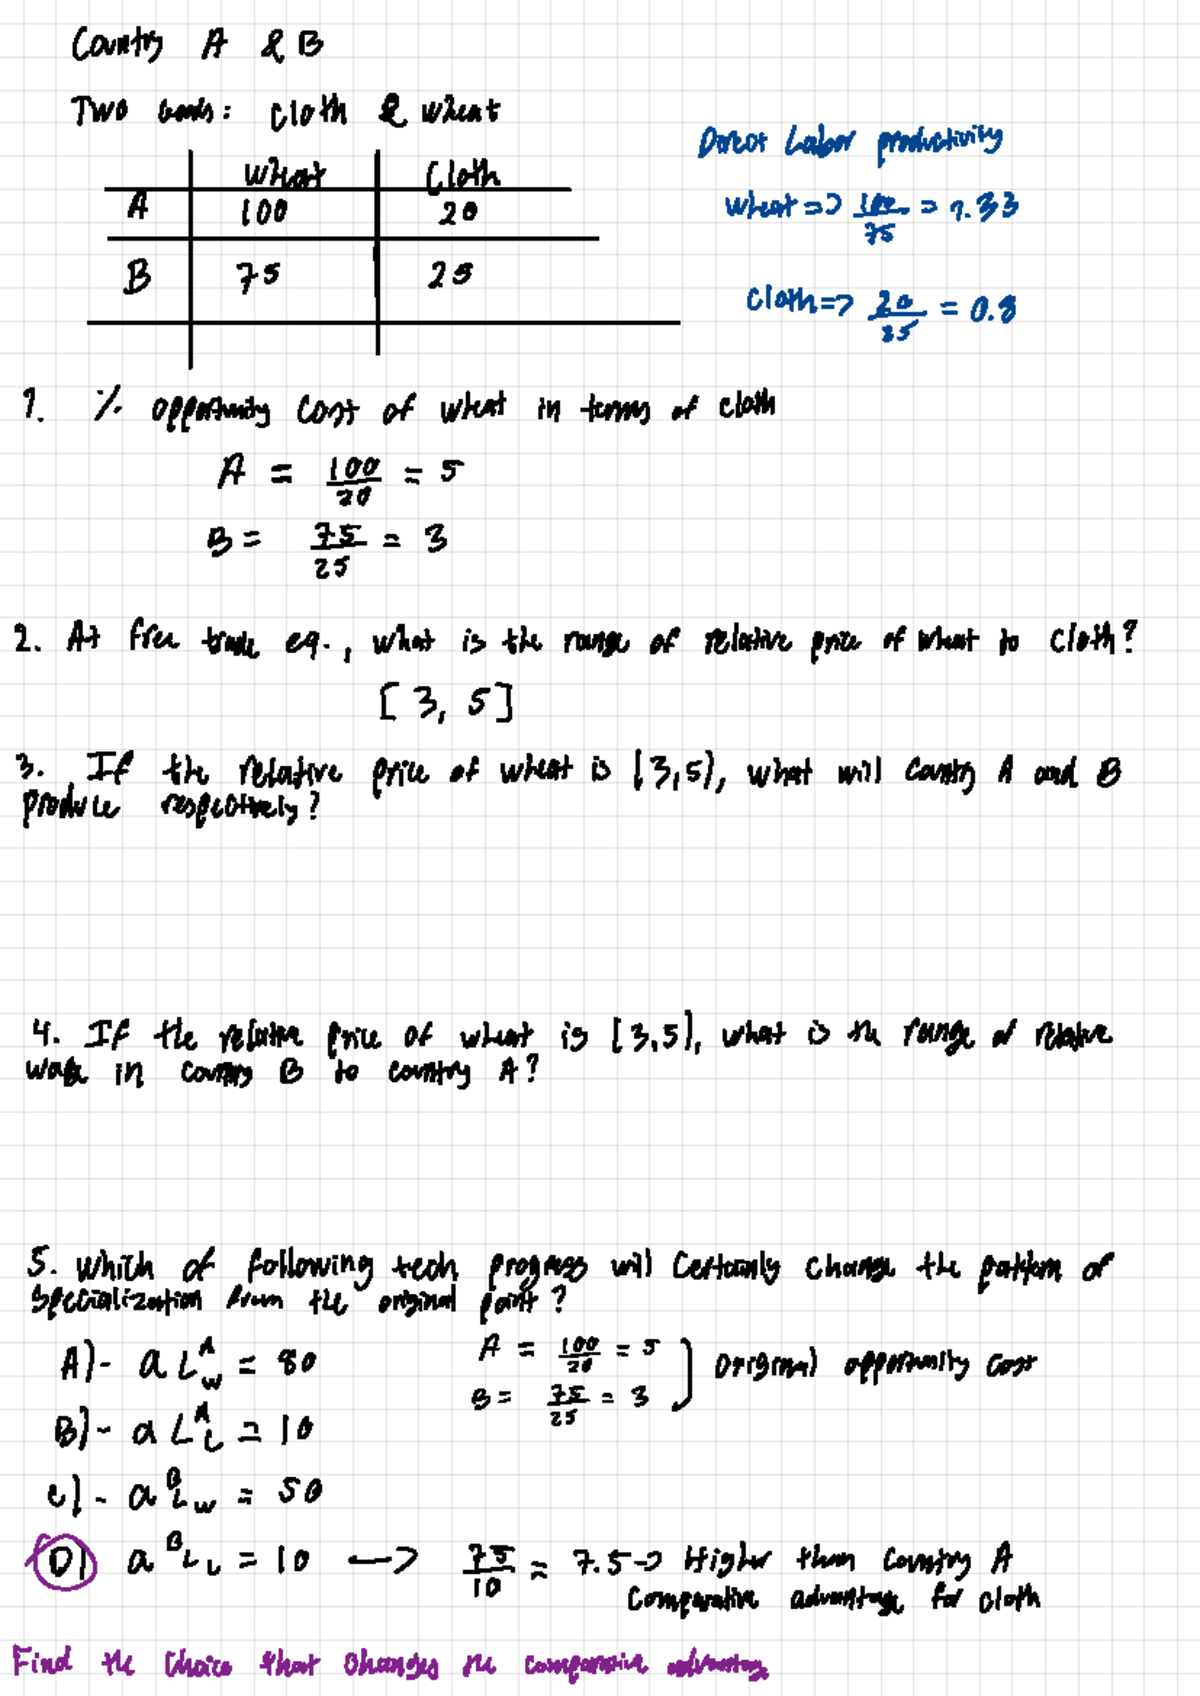 Country A & B
Two Goods: Cloth & Wheat
Wheat Cloth
A 100 20
B 75 25
Direct Labor productivity
wheat => 100/75 = 1.33
cloth => 20/25 = 0.8
1. % opportunity cost of wheat in terms of cloth
A = 100/20 = 5
B = 75/25 = 3
2. At free trade eq., what is the range of relative price of wheat to cloth?
[3, 5]
3. If the relative price of wheat is [3,5], what will country A and B
produce respectively?
4. If the relative price of wheat is [3,5], what is the range of relative
wage in country B to country A?
5. Which of following tech progress will certainly change the pattern of
specialization from the original point?
A)- aL^A_w = 80
B)- aL^A_c = 10
c)- a^B_Lw = 50
D) a^B_Lc = 10 --> 75/10 = 7.5 -> Higher than Country A
Comparative advantage for cloth
A = 100/20 = 5
B = 75/25 = 3
Original opportunity cost
Find the choice that changes the comparative advantage